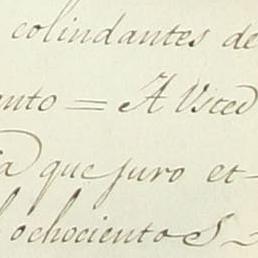 colindantes de
ento = A Usted
que juro et
ochocientos